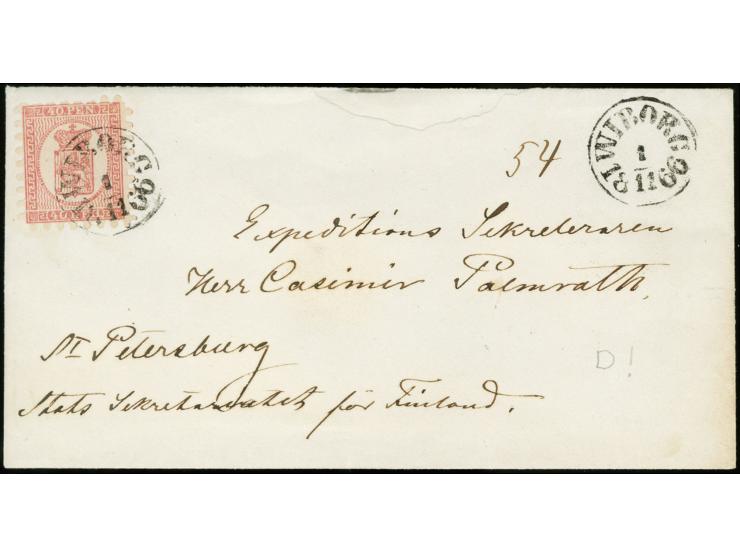 40 PEN
WIBORG
1
11
66
40 PEN
WIBORG
1
11
66
54
Expeditions Sekreteraren
Herr Casimir Palmroth,
St Petersburg
Stats Sekretariatet för Finland.
D!